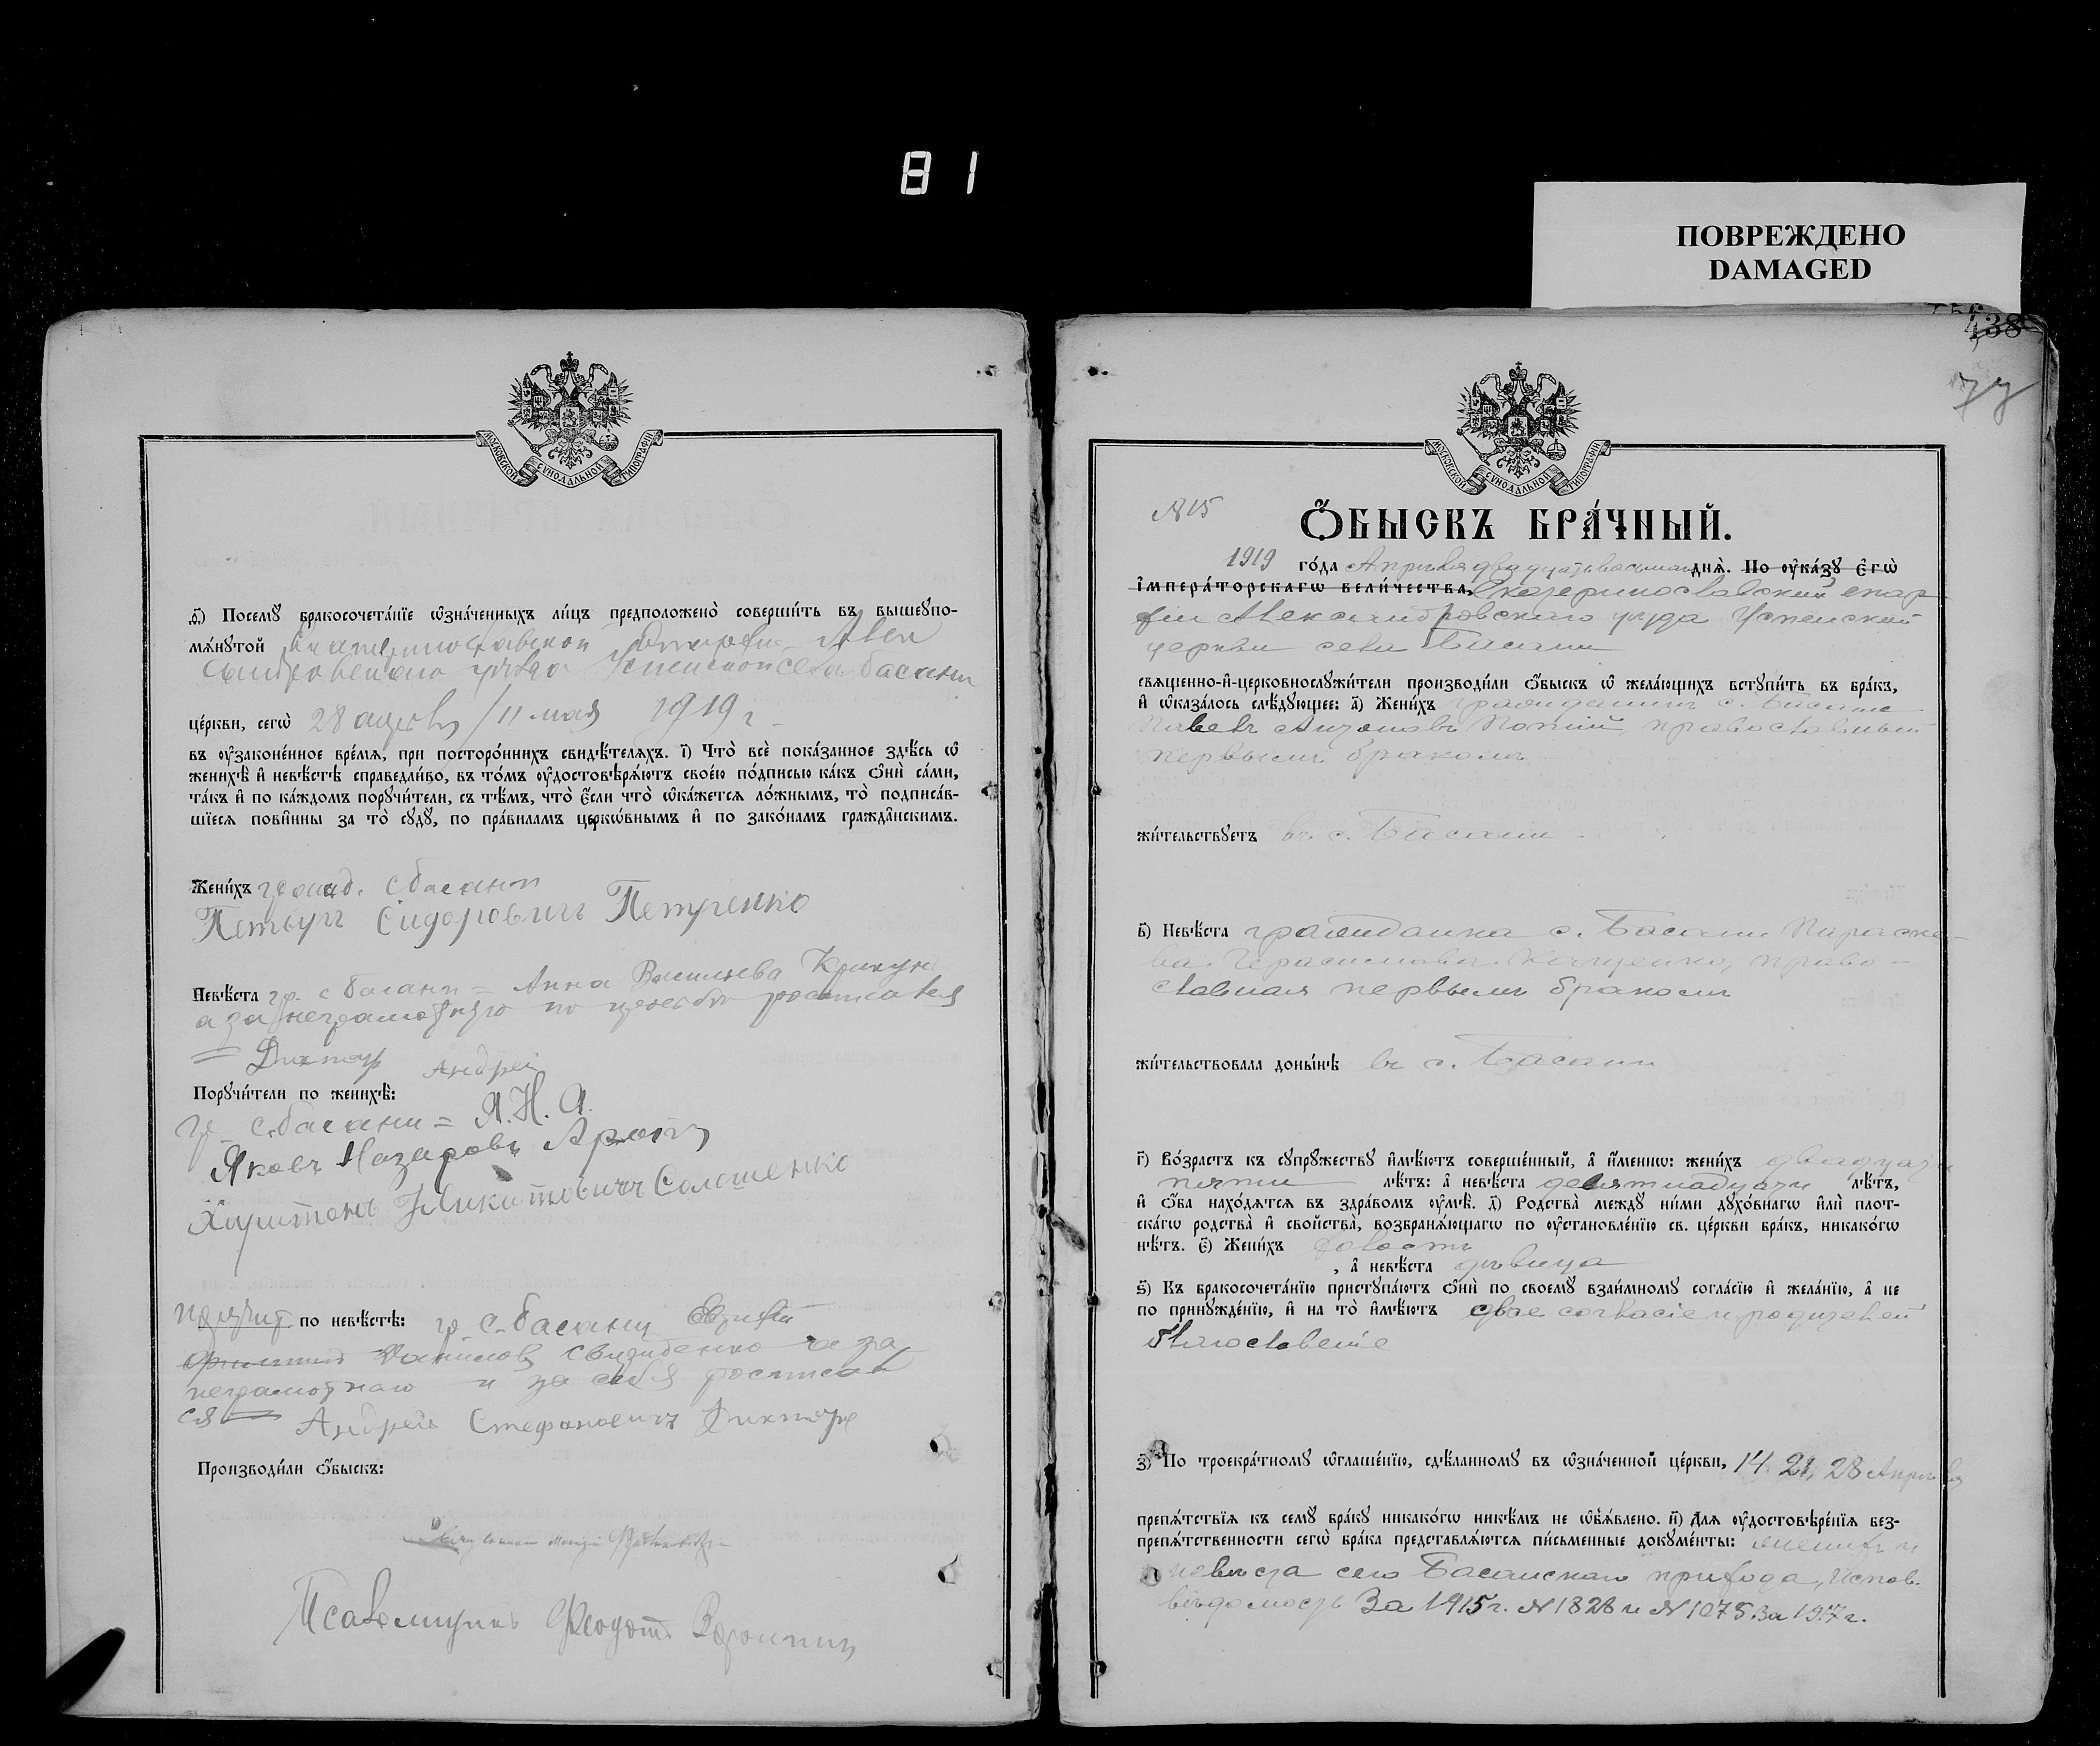 81
ПОВРЕЖДЕНО
DAMAGED
438
77
МОСКОВСКОЙ СΥНОДАЛЬНОЙ ТИПОГРАФІИ
ѳ҃) Посемꙋ̀ бракосочета́нїе ѡ҆зна́ченныхъ ли́цъ предположено̀ соверши́ть въ вышеꙋпо-
мѧ́нꙋтой Екатеринославской епархіи Алек
сандровскаго уѣзда Успенской села Басани
це́ркви, сегѡ̀ 28 апрѣля / 11 мая 1919 г
въ ᲂу҆зако́ненное вре́мѧ, при посторо́ннихъ свидѣ́телѧхъ. і҃) Что̀ всѐ пока́занное здѣ́сь ѡ҆
женихѣ̀ и҆ невѣ́стѣ справедли́во, въ то́мъ ᲂу҆достовѣрѧ́ютъ свое́ю по́дписью ка́къ ѻ҆нѝ са́ми,
та́къ и҆ по ка́ждомъ порꙋчи́тели, съ тѣ́мъ, что̀ є҆́сли что̀ ѡ҆ка́жетсѧ ло́жнымъ, то̀ подписа́в-
шїесѧ пови́нны за то̀ сꙋдꙋ̀, по пра́виламъ церко́внымъ и҆ по зако́намъ гражда̑нскимъ.
Жени́хъ гражд. с Басани
Петръ Сидоровичъ Петренко
Невѣ́ста гр. с Басани = Анна Васильева Крикун
а за неграмотную по просьби росписался
= Дихтяр Андрей
Порꙋчи́тели по женихѣ̀:
гр. с. Басани = Я. Н. А.
Яковъ Назаровъ
Харитонъ Никитовичъ Солошенко
поручит по невѣ́стѣ: гр. с. Басани
Данилов а за
неграмотнаго и за себя росписал
ся = Андрей Стефановичъ Дихтяр
Производи́ли ѻ҆́быскъ:
Псаломщикъ Феодотъ
МОСКОВСКОЙ СΥНОДАЛЬНОЙ ТИПОГРАФІИ
N 15
Ѻ҆́БЫСКЪ БРА́ЧНЫЙ.
1919 го́да Апрѣля двадцать восьмого днѧ̀. По ᲂу҆ка́зꙋ Є҆гѡ̀
І҆мпера́торскагѡ вели́чества, Екатеринославской епар
хіи Александровскаго уѣзда Успенской
церкви села Басани
свѧщенно-и҆-церковнослꙋжи́тели производи́ли ѻ҆́быскъ ѡ҆ жела́ющихъ встꙋпи́ть въ бра́къ,
и҆ ѡ҆каза́лось слѣ́дꙋющее: а҃) Жени́хъ гражданинъ с. Басани
Павелъ Антоновъ Попій, православный
первымъ бракомъ
жи́тельствꙋетъ въ с. Басани
в҃) Невѣ́ста гражданка с. Басани Параске-
ва Герасимова Кащенко, право-
славная первымъ бракомъ
жи́тельствовала доны́нѣ въ с. Басани
г҃) Во́зрастъ къ сꙋпрꙋ́жествꙋ и҆мѣ́ютъ соверше́нный, а҆ и҆́менно: жени́хъ двадцати
пяти лѣ́тъ: а҆ невѣ́ста девятнадцати лѣ́тъ,
и҆ ѻ҆́ба нахо́дѧтсѧ въ здра́вомъ ᲂу҆мѣ̀. д҃) Родства̀ междꙋ̀ ни́ми дꙋхо́внагѡ и҆лѝ плот-
ска́гѡ родства̀ и҆ свойства̀, возбранѧ́ющагѡ по ᲂу҆становле́нїю св. це́ркви бра́къ, никако́гѡ
нѣ́тъ. є҃) Жени́хъ холостъ
, а҆ невѣ́ста дѣвица
ѕ҃) Къ бракосочета́нїю пристꙋпа́ютъ ѻ҆нѝ по своемꙋ̀ взаи́мномꙋ согла́сїю и҆ жела́нїю, а҆ не
по принꙋжде́нїю, и҆ на то̀ и҆мѣ́ютъ свое согласіе и родителей
благословеніе
з҃) По троекра́тномꙋ ѡ҆глаше́нїю, сдѣ́ланномꙋ въ ѡ҆зна́ченной це́ркви, 14, 21, 28 Апрѣля
препѧ́тствїѧ къ семꙋ̀ бра́кꙋ никако́гѡ никѣ́мъ не ѡ҆б̾ѧ́влено. и҃) Длѧ ᲂу҆достовѣре́нїѧ без-
препѧ́тственности сегѡ̀ бра́ка представлѧ́ютсѧ пи́сьменные докꙋме́нты: женихъ и
невѣста сего Басанскаго прихода, Испов.
вѣдомость За 1915 г. N 1828 и N 1078 За 1917 г.